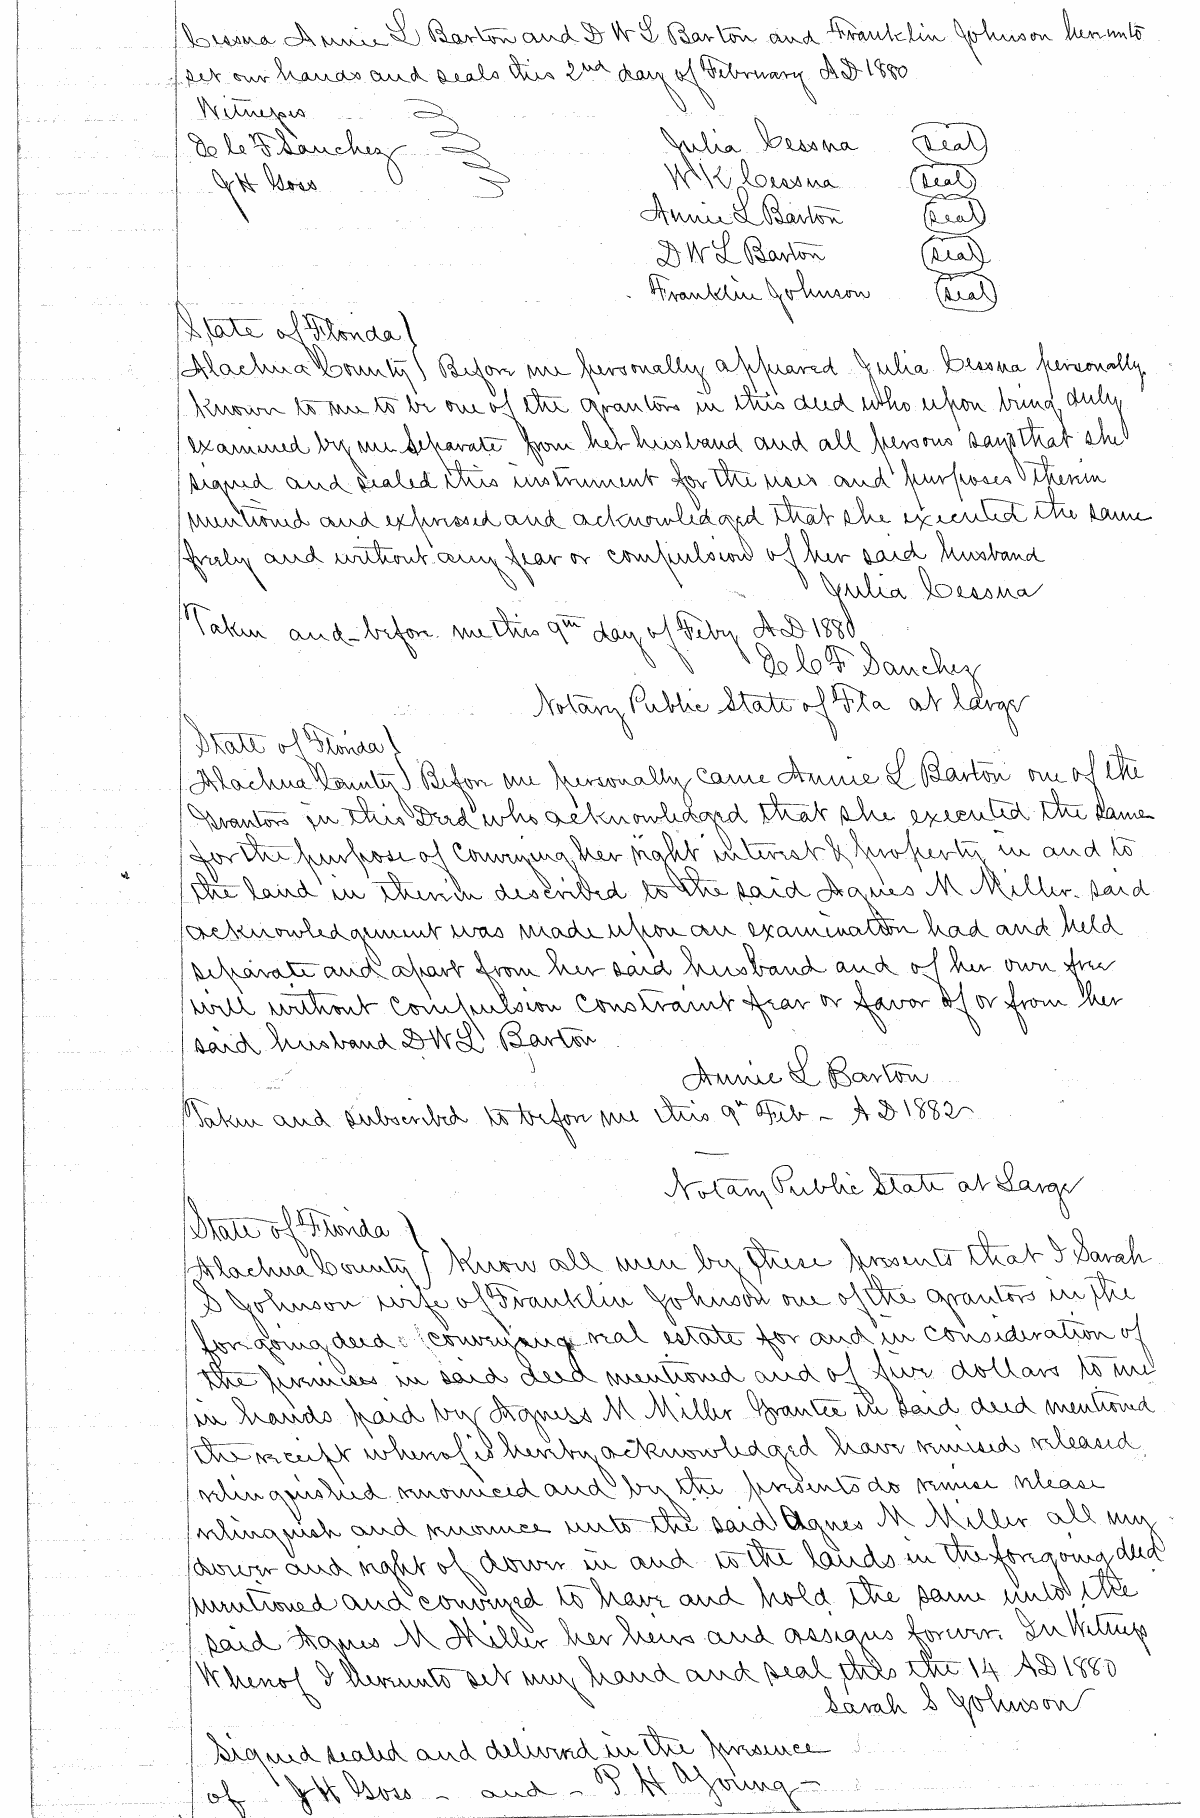 Cessna Annie L Barton and D W L Barton and Franklin Johnson hereunto
set our hands and seals this 2nd day of February A D 1880
Witnesses
F Sanchez Julia Cessna (seal)
J H Goss W K Cessna (seal)
Annie L Barton (seal)
D W L Barton (seal)
Franklin Johnson (seal)
State of Florida )
Alachua County ) Before me personally appeared Julia Cessna personally
known to me to be one of the grantors in this deed who upon being duly
examined by me separate from her husband and all persons says that she
signed and sealed this instrument for the uses and purposes therein
mentioned and expressed and acknowledged that she executed the same
freely and without any fear or compulsion of her said husband
Julia Cessna
Taken and before me this 9th day of Feby A D 1880
C F Sanchez
Notary Public State of Fla at large
State of Florida )
Alachua County ) Before me personally came Annie L Barton one of the
Grantors in this Deed who acknowledged that she executed the same
for the purpose of conveying her right interest & property in and to
the land in therein described to the said Agnes M Miller. said
acknowledgement was made upon an examination had and held
separate and apart from her said husband and of her own free
will without compulsion constraint fear or favor of or from her
said husband D W L Barton
Annie L Barton
Taken and subscribed to before me this 9th Feb - A D 1882
Notary Public State at Large
State of Florida )
Alachua County ) Know all men by these presents that I Sarah
S Johnson wife of Franklin Johnson one of the grantors in the
foregoing deed conveying real estate for and in consideration of
the premises in said deed mentioned and of five dollars to me
in hands paid by Agness M Miller Grantee in said deed mentioned
the receipt whereof is hereby acknowledged have remised released
relinquished renounced and by the presents do remise release
relinquish and renounce unto the said Agnes M Miller all my
dower and right of dower in and to the lands in the foregoing deed
mentioned and conveyed to have and hold the same unto the
said Agnes M Miller her heirs and assigns forever. In Witness
Whereof I hereunto set my hand and seal this the 14 A D 1880
Sarah S Johnson
Signed sealed and delivered in the presence
of J H Goss - and - P H Young -